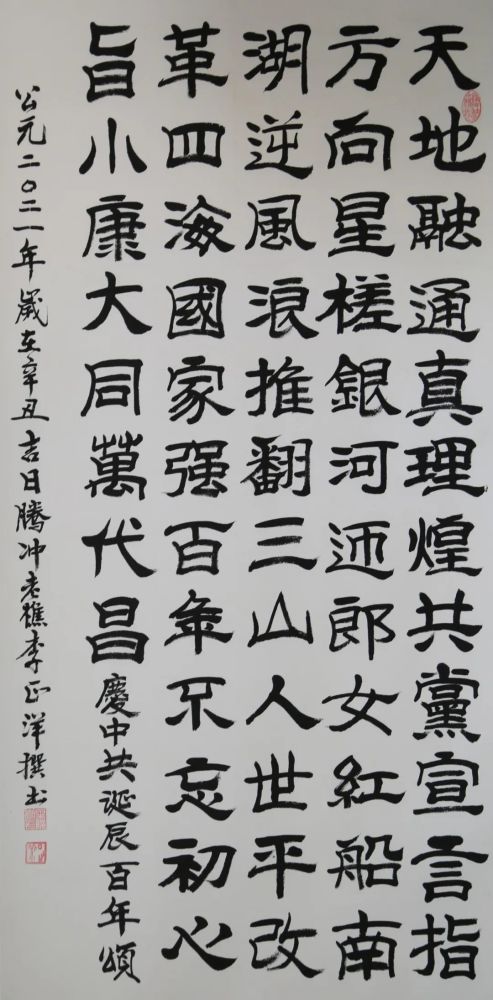 天地融通真理煌共黨宣言指
方向星槎銀河迊郎女紅船南
湖逆風浪推翻三山人世平改
革四海國家强百年不忘初心
旨小康大同萬代昌
慶中共誕辰百年頌
公元二〇二一年歲在辛丑吉日騰冲老樵李正洋撰书